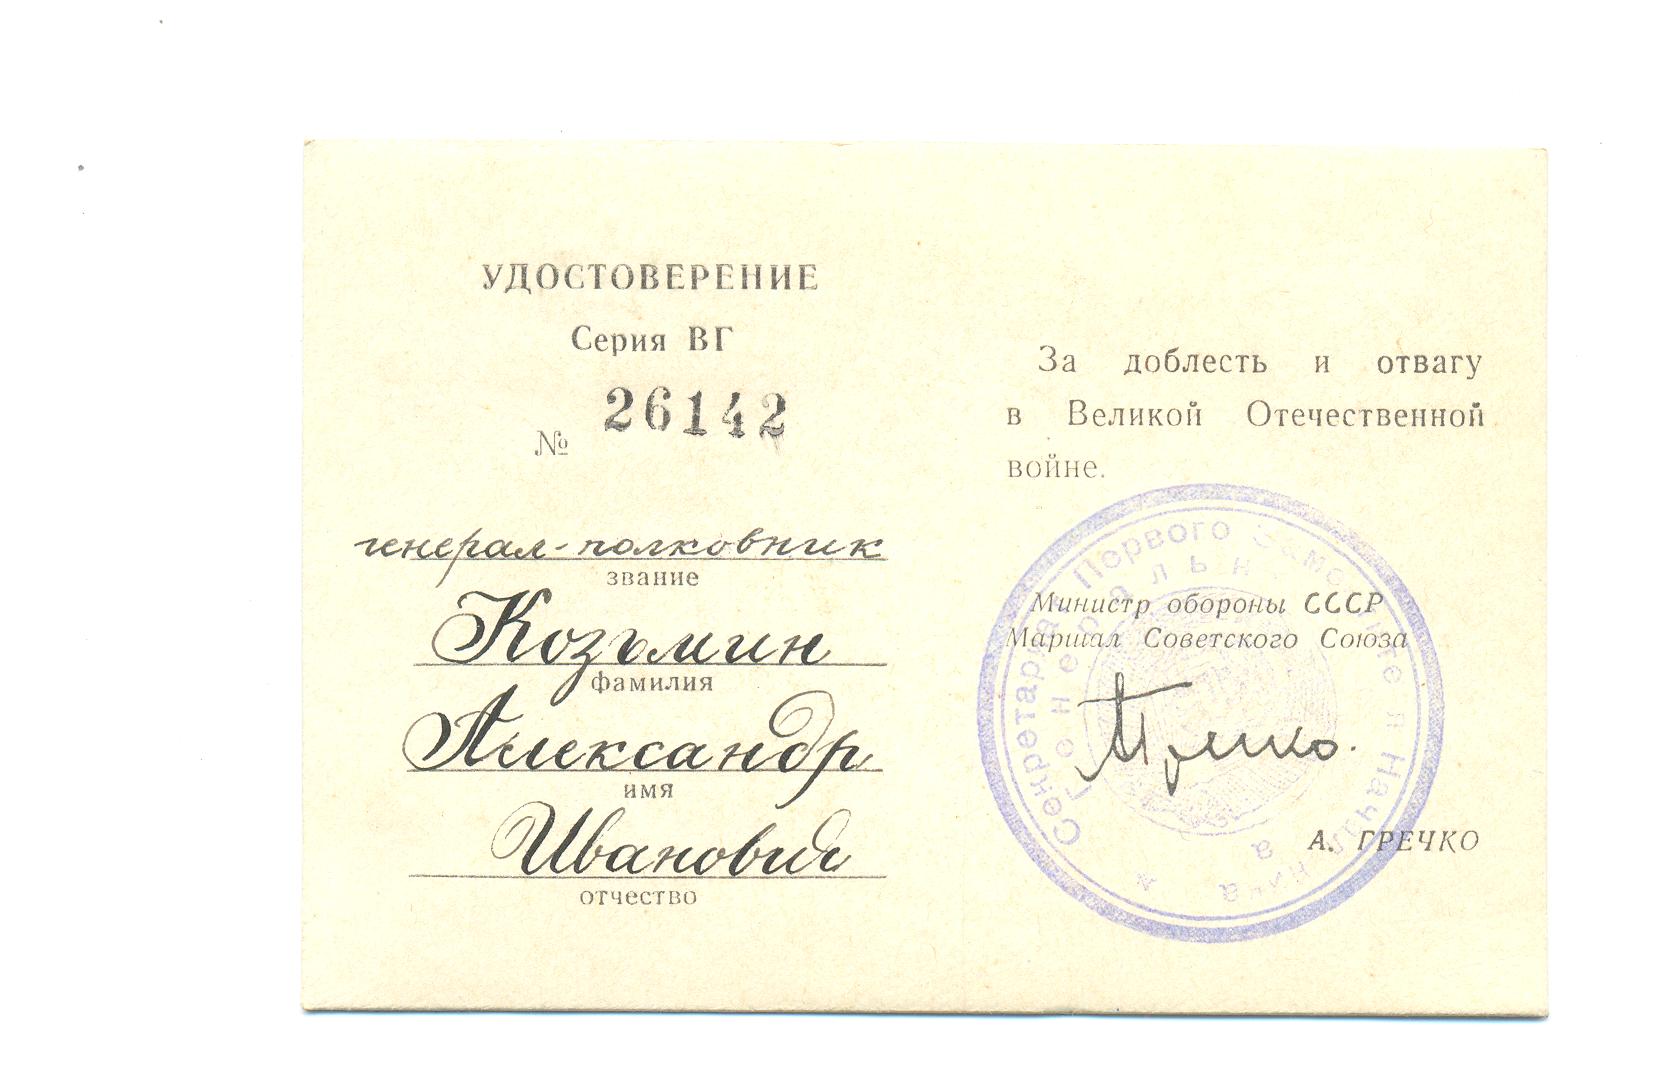 УДОСТОВЕРЕНИЕ
Серия ВГ
№ 26142
генерал-полковник
звание
Козьмин
фамилия
Александр
имя
Иванович
отчество
За доблесть и отвагу
в Великой Отечественной
войне.
Министр обороны СССР
Маршал Советского Союза
А. ГРЕЧКО
Секретариат Первого Заместителя Начальника
Генерального